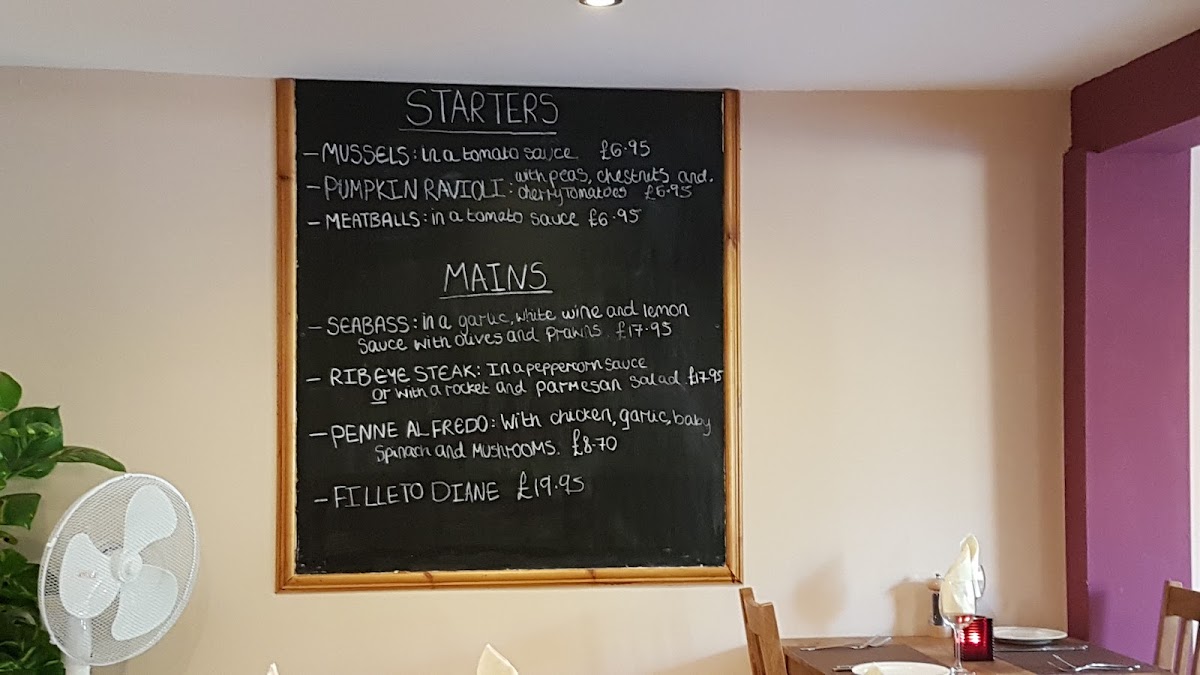 STARTERS
- MUSSELS: in a tomato sauce £6.95
- PUMPKIN RAVIOLI: with peas, chestnuts and
cherry tomatoes £6.95
- MEATBALLS: in a tomato sauce £6.95
MAINS
- SEABASS: in a garlic, white wine and lemon
sauce with olives and prawns. £17.95
- RIBEYE STEAK: In a peppercorn sauce
or with a rocket and parmesan salad £17.95
- PENNE ALFREDO: With chicken, garlic, baby
spinach and mushrooms. £8.70
- FILLETO DIANE £19.95